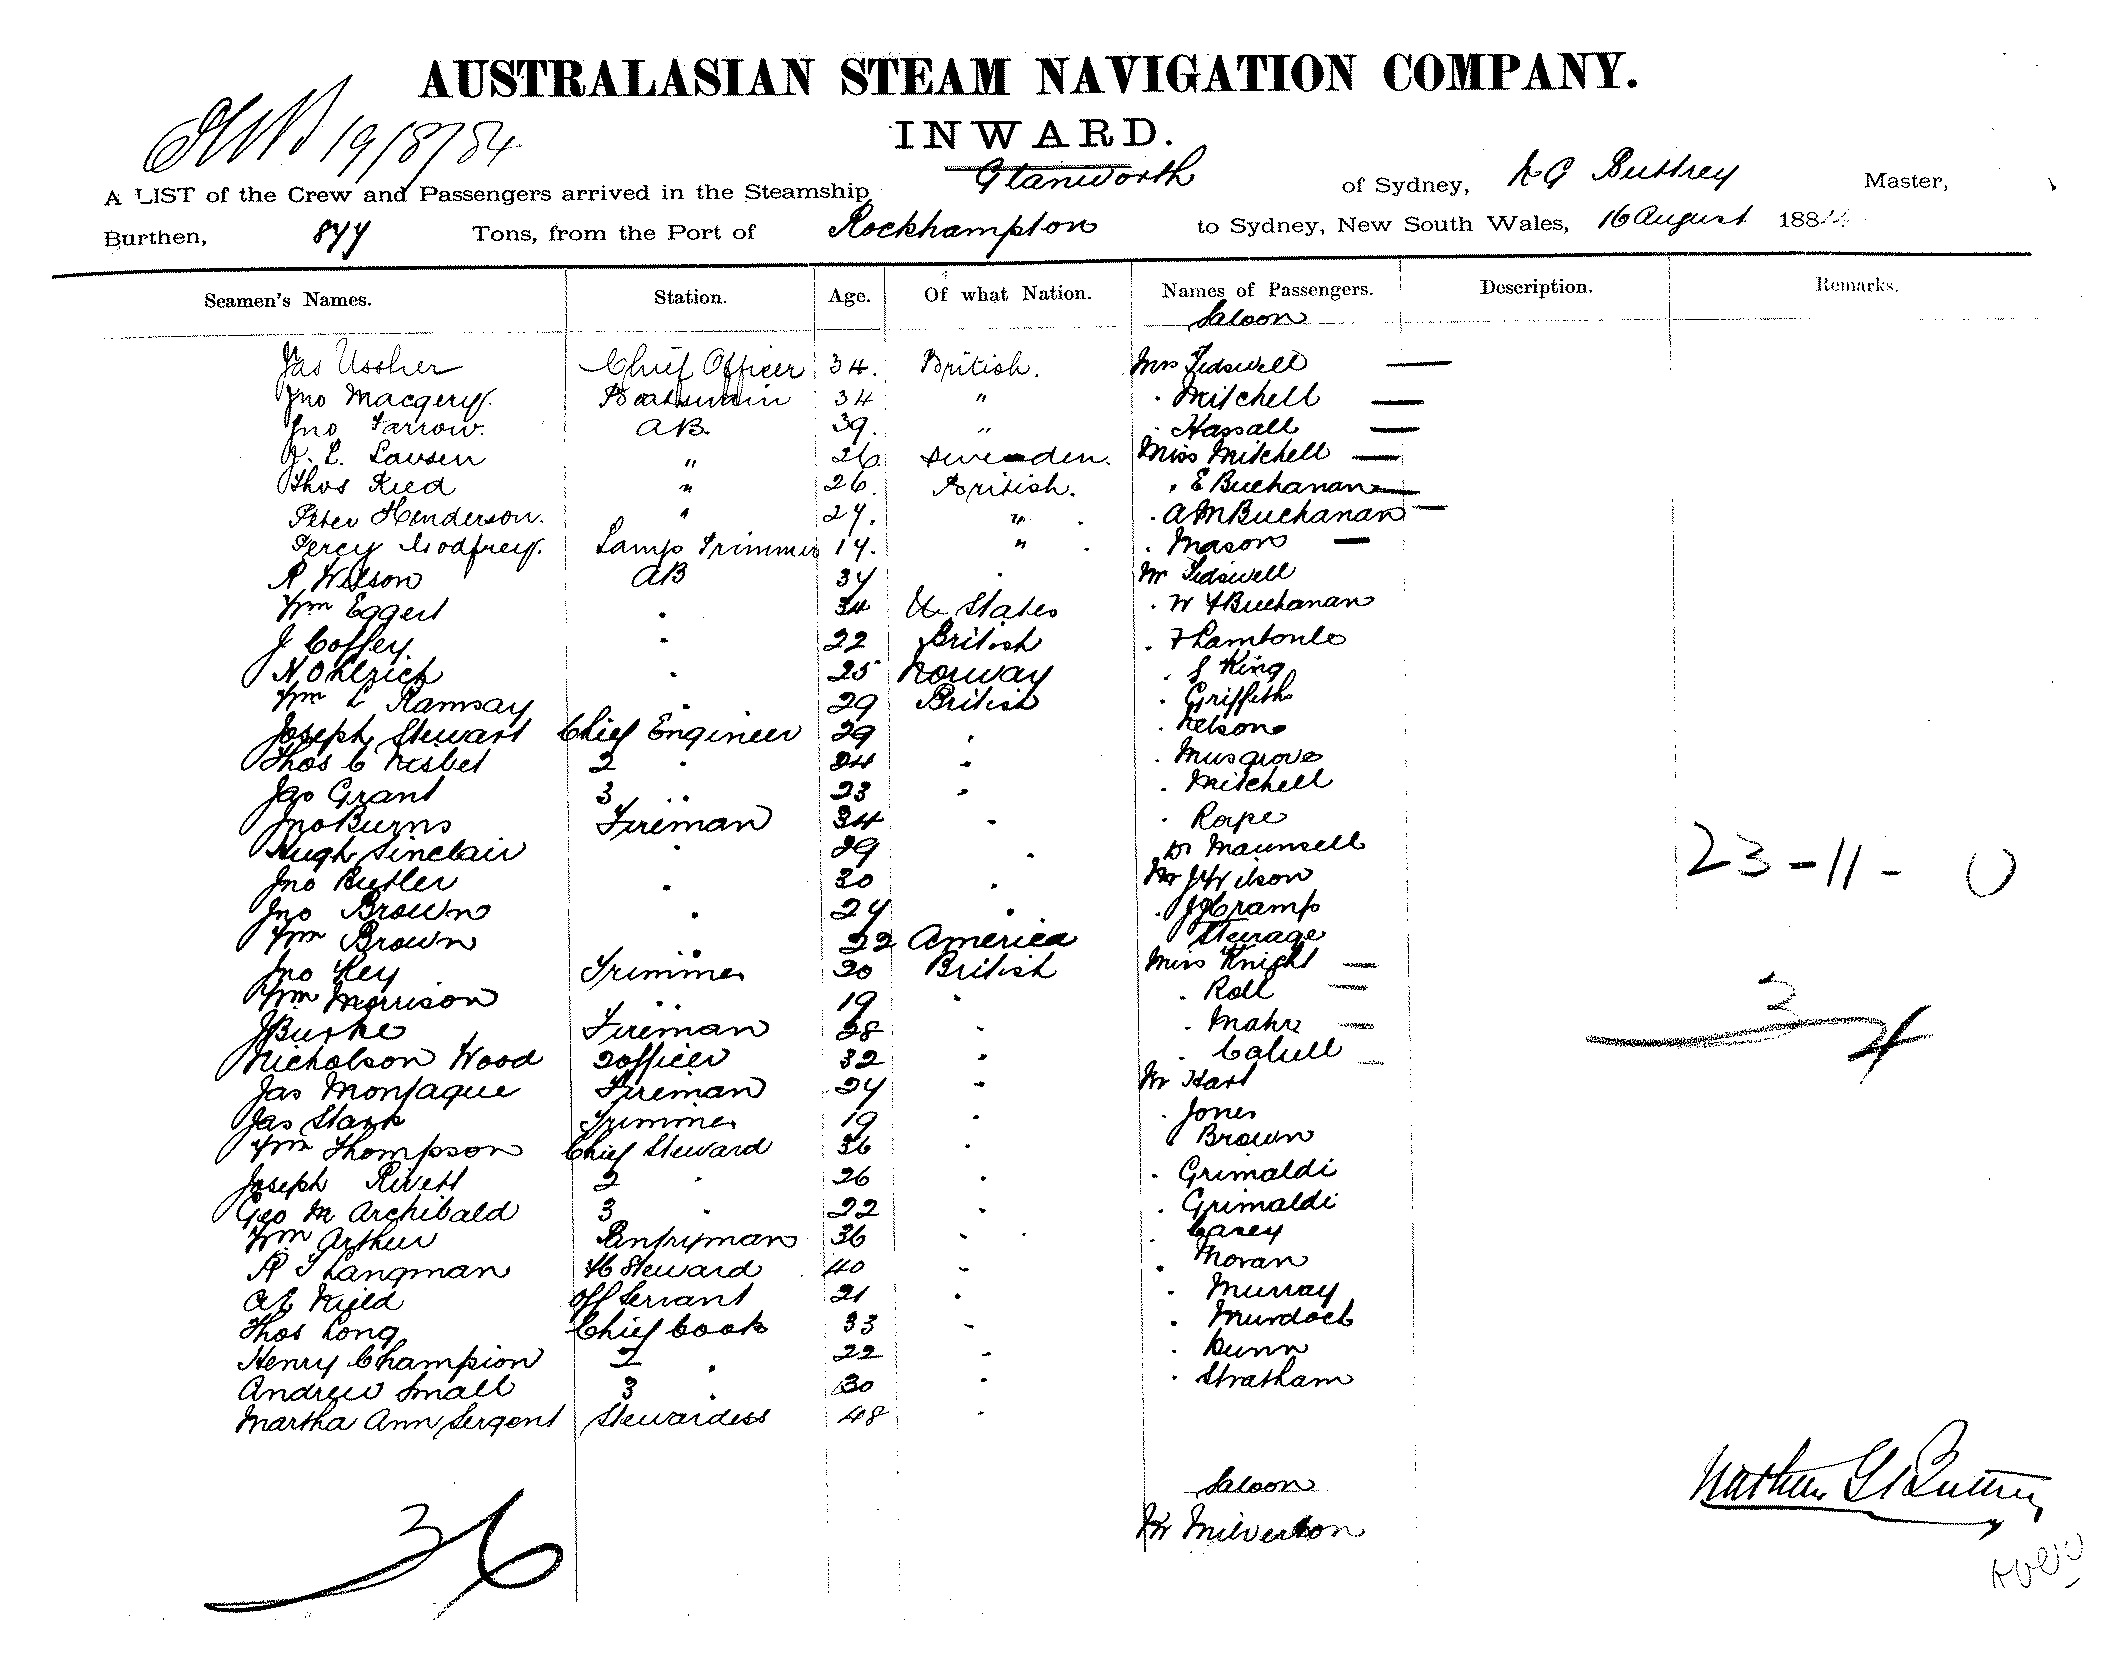 AUSTRALASIAN STEAM NAVIGATION COMPANY.
19/8/84
INWARD.
A LIST of the Crew and Passengers arrived in the Steamship Glanworth of Sydney, N G Buttrey Master,
Burthen, 877 Tons, from the Port of Rockhampton to Sydney, New South Wales, 16 August 1884
Seamen's Names. Station. Age. Of what Nation. Names of Passengers. Description. Remarks.
Saloon
Jas Ussher Chief Officer 34. British. Mrs Tidswell —
Jno Macgery. Boatswain 34 " . Mitchell —
Jno Farrow. AB. 39. " . Hassall —
J. L. Lawsen " 26 Sweden. Miss Mitchell —
Thos Reed " 26. British. . E Buchanan —
Peter Henderson. " 27. " . A M Buchanan —
Percy Godfrey. Lamp Trimmer 17. " . Mason —
R Wilson AB 37 . Mr Tidswell
Wm Eggert . 34 U States . W F Buchanan
J Coffey. . 22 British . F Lamtonle
N Ohlrich . 25 Norway . J King
Wm L Ramsay . 29 British . Griffith
Joseph Stewart Chief Engineer 29 . . Nelson
Thos C Nisbet 2 . 24 . . Musgrove
Jas Grant 3 .. 23 . . Mitchell
Jno Burns Fireman 34 . . Rope
Hugh Sinclair . 29 . Dr Maunsell
Jno Butler . 30 . Mr J Wilson
Jno Brown . 27 . . J J Cramp
Wm Brown . 22 America Steerage
Jno Key Trimmer 20 British Miss Knight —
Wm Morrison . . 19 . . Roll —
J Burke Fireman 28 . . Mahr —
Nicholson Wood 2 officer 32 . . Cahill —
Jas Montague Fireman 27 . Mr Hart
Jas Stark Trimmer 19 . . Jones
Wm Thompson Chief Steward 36 . . Brown
Joseph Rivett 2 . 26 . . Grimaldi
Geo M Archibald 3 . 22 . . Grimaldi
Wm Arthur Pantryman 36 . . Casey
R T Langman Steward 40 . . Moran
Off Servant 21 . . Murray
Thos Long Chief Cook 33 . . Murdoch
Henry Champion 2 . 22 . . Dunn
Andrew Small 3 . 30 . . Stratham
Martha Ann Sergent Stewardess 48 .
23-11-0
3
4
Saloon
Mr Milverton
36
Nathan G Buttrey
over